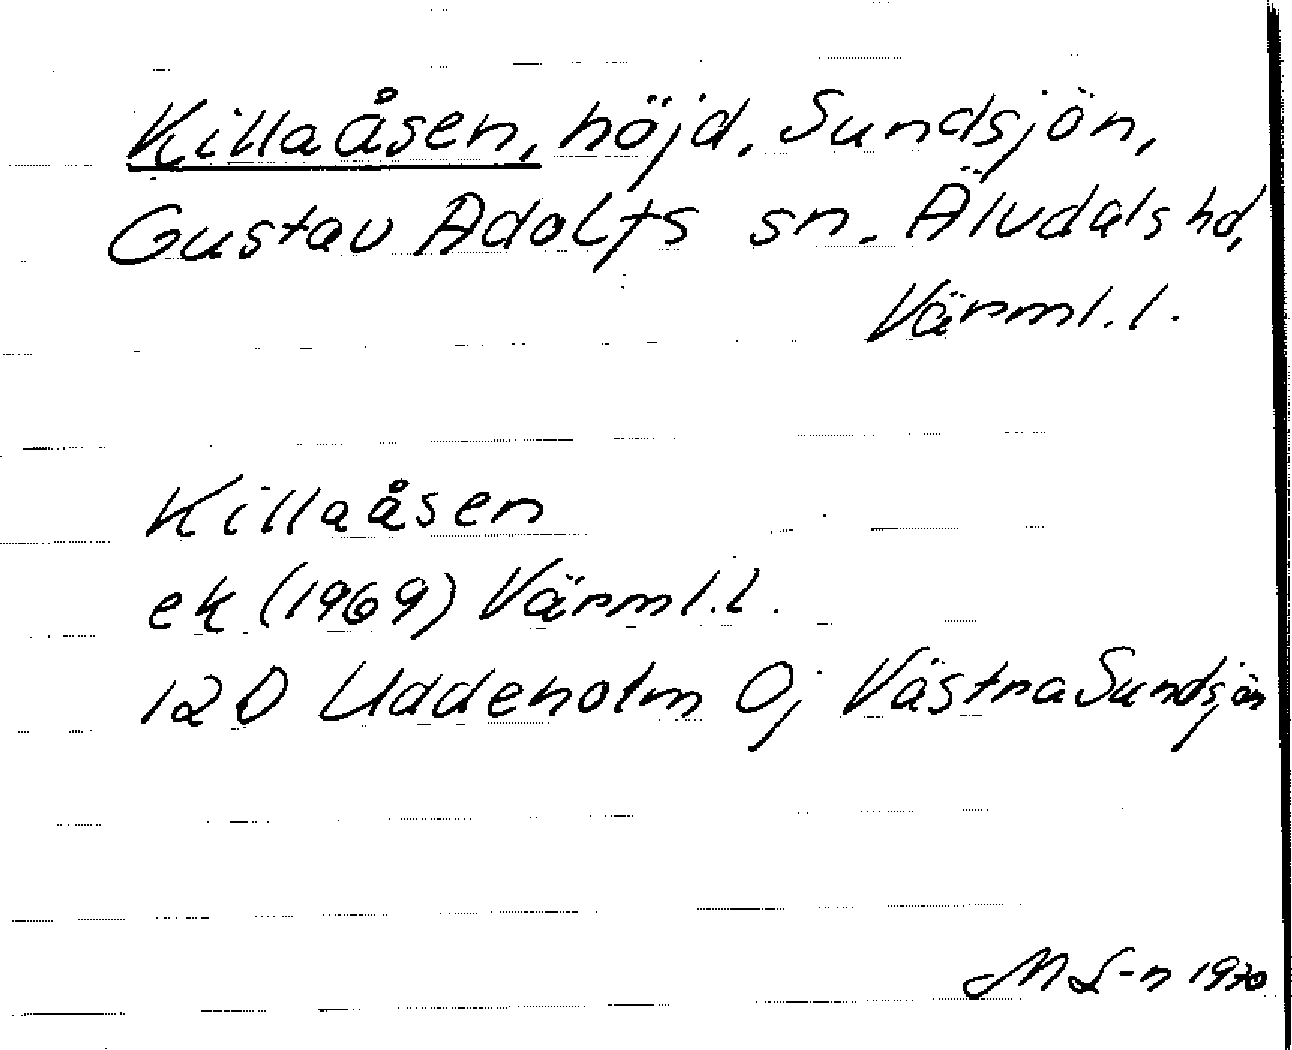 Killaåsen, höjd, Sundsjön,
Gustav Adolfs sn. Älvdals hd,
Värml.l.
Killaåsen
ek (1969) Värml.l.
12D Uddeholm Oj Västra Sundsjön
M L-n 1970